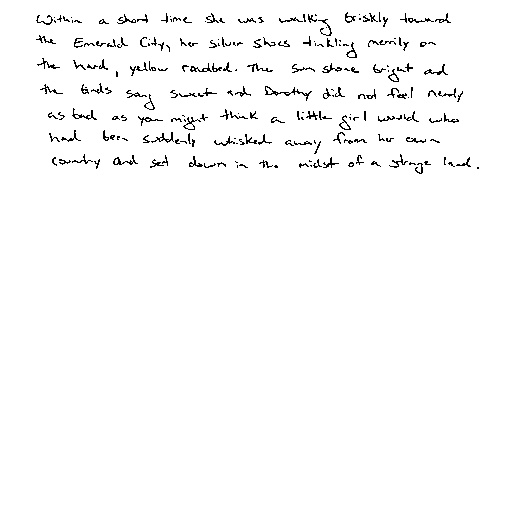 Within a short time she was walking briskly toward
the Emerald City, her silver shoes tinkling merrily on
the hard, yellow roadbed. The sun shone bright and
the birds sang sweet and Dorothy did not feel nearly
as bad as you might think a little girl would who
had been suddenly whisked away from her own
country and set down in the midst of a strange land.